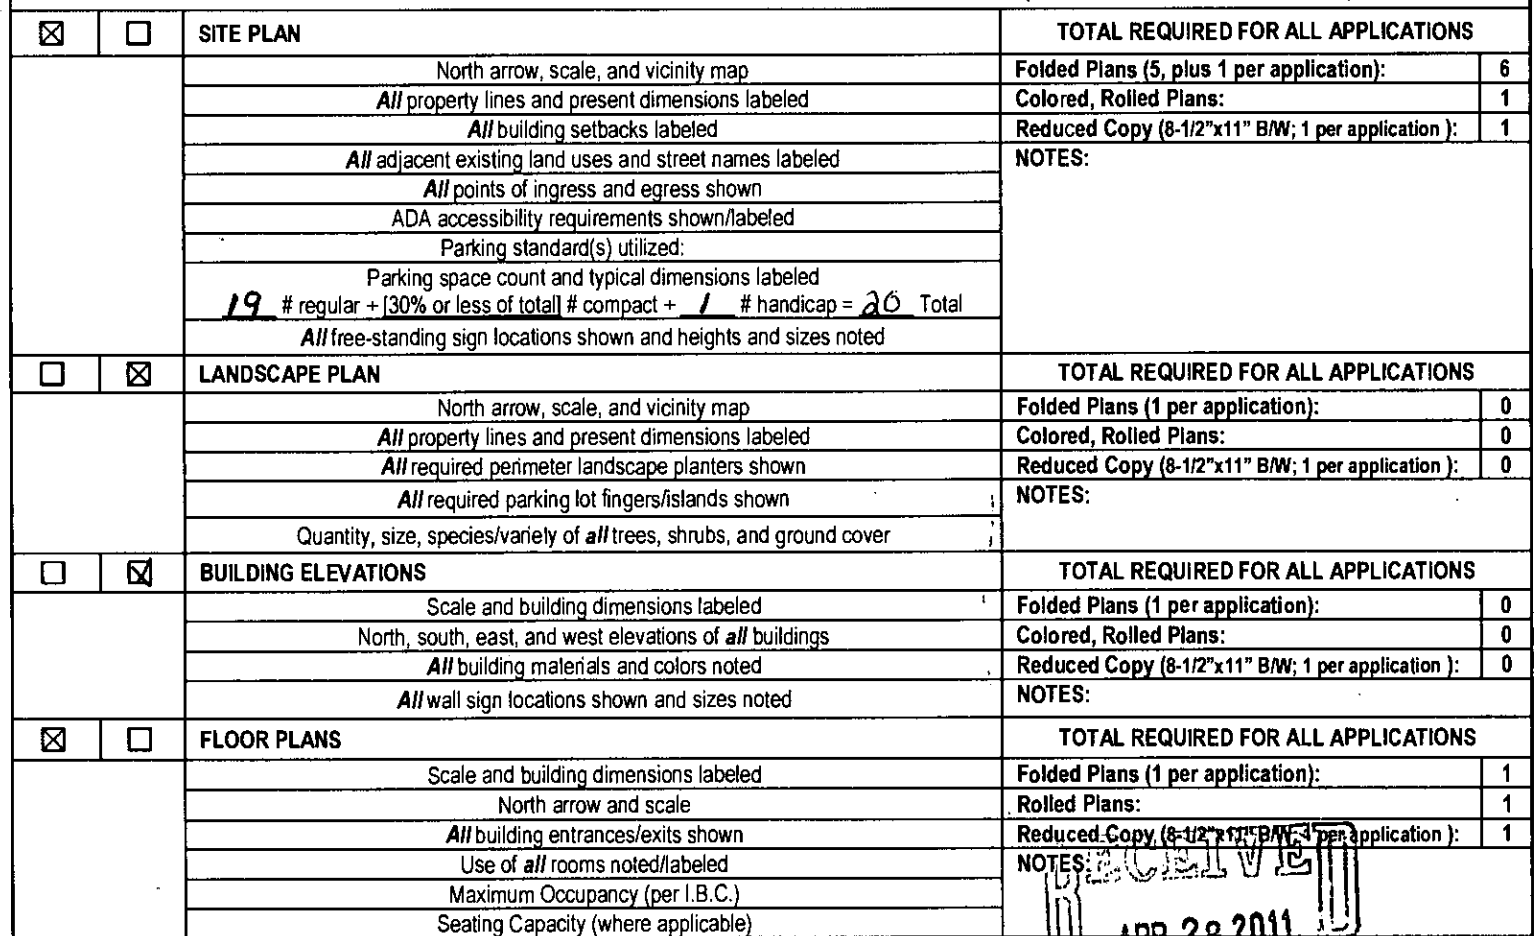 ☒ ☐ SITE PLAN TOTAL REQUIRED FOR ALL APPLICATIONS
North arrow, scale, and vicinity map Folded Plans (5, plus 1 per application): 6
All property lines and present dimensions labeled Colored, Rolled Plans: 1
All building setbacks labeled Reduced Copy (8-1/2"x11" B/W; 1 per application ): 1
All adjacent existing land uses and street names labeled NOTES:
All points of ingress and egress shown
ADA accessibility requirements shown/labeled
Parking standard(s) utilized:
Parking space count and typical dimensions labeled
19 # regular + [30% or less of total] # compact + 1 # handicap = 20 Total
All free-standing sign locations shown and heights and sizes noted
☐ ☒ LANDSCAPE PLAN TOTAL REQUIRED FOR ALL APPLICATIONS
North arrow, scale, and vicinity map Folded Plans (1 per application): 0
All property lines and present dimensions labeled Colored, Rolled Plans: 0
All required perimeter landscape planters shown Reduced Copy (8-1/2"x11" B/W; 1 per application ): 0
All required parking lot fingers/islands shown NOTES:
Quantity, size, species/variety of all trees, shrubs, and ground cover
☐ ☒ BUILDING ELEVATIONS TOTAL REQUIRED FOR ALL APPLICATIONS
Scale and building dimensions labeled Folded Plans (1 per application): 0
North, south, east, and west elevations of all buildings Colored, Rolled Plans: 0
All building materials and colors noted Reduced Copy (8-1/2"x11" B/W; 1 per application ): 0
All wall sign locations shown and sizes noted NOTES:
☒ ☐ FLOOR PLANS TOTAL REQUIRED FOR ALL APPLICATIONS
Scale and building dimensions labeled Folded Plans (1 per application): 1
North arrow and scale Rolled Plans: 1
All building entrances/exits shown Reduced Copy (8-1/2"x11" B/W; 1 per application ): 1
Use of all rooms noted/labeled NOTES:
RECEIVED
Maximum Occupancy (per I.B.C.)
Seating Capacity (where applicable)
APR 28 2011